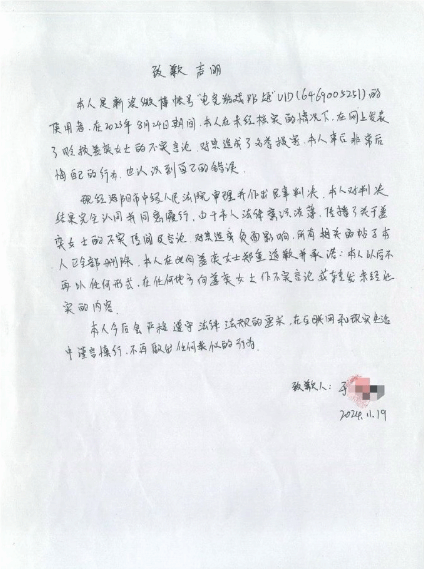 致歉声明
本人是新浪微博帐号"电竞游戏 UID(6469003251)的
使用者,在2023年8月24日期间,本人在未经核实的情况下,在网上发表
了 姜英女士的不实言论,对其造成了名誉损害,本人事后非常后
悔自己的行为,也认识到自己的错误。
现经 阳市中级人民法院审理并作出民事判决。本人对判决
结果完全认同并同意履行。由于本人法律意识淡薄,传播了关于姜
英女士的不实信息及言论,对其造成负面影响,所有相关的帖子本
人已全部删除。本人在此向姜英女士郑重道歉并承诺:本人以后不
再以任何形式,在任何地方向姜英女士作不实言论或转发未经证
实的内容。
本人今后会严格遵守法律法规的要求,在互联网和现实生活
中谨言慎行,不再做出任何侵权的行为。
致歉人:
2024.11.19